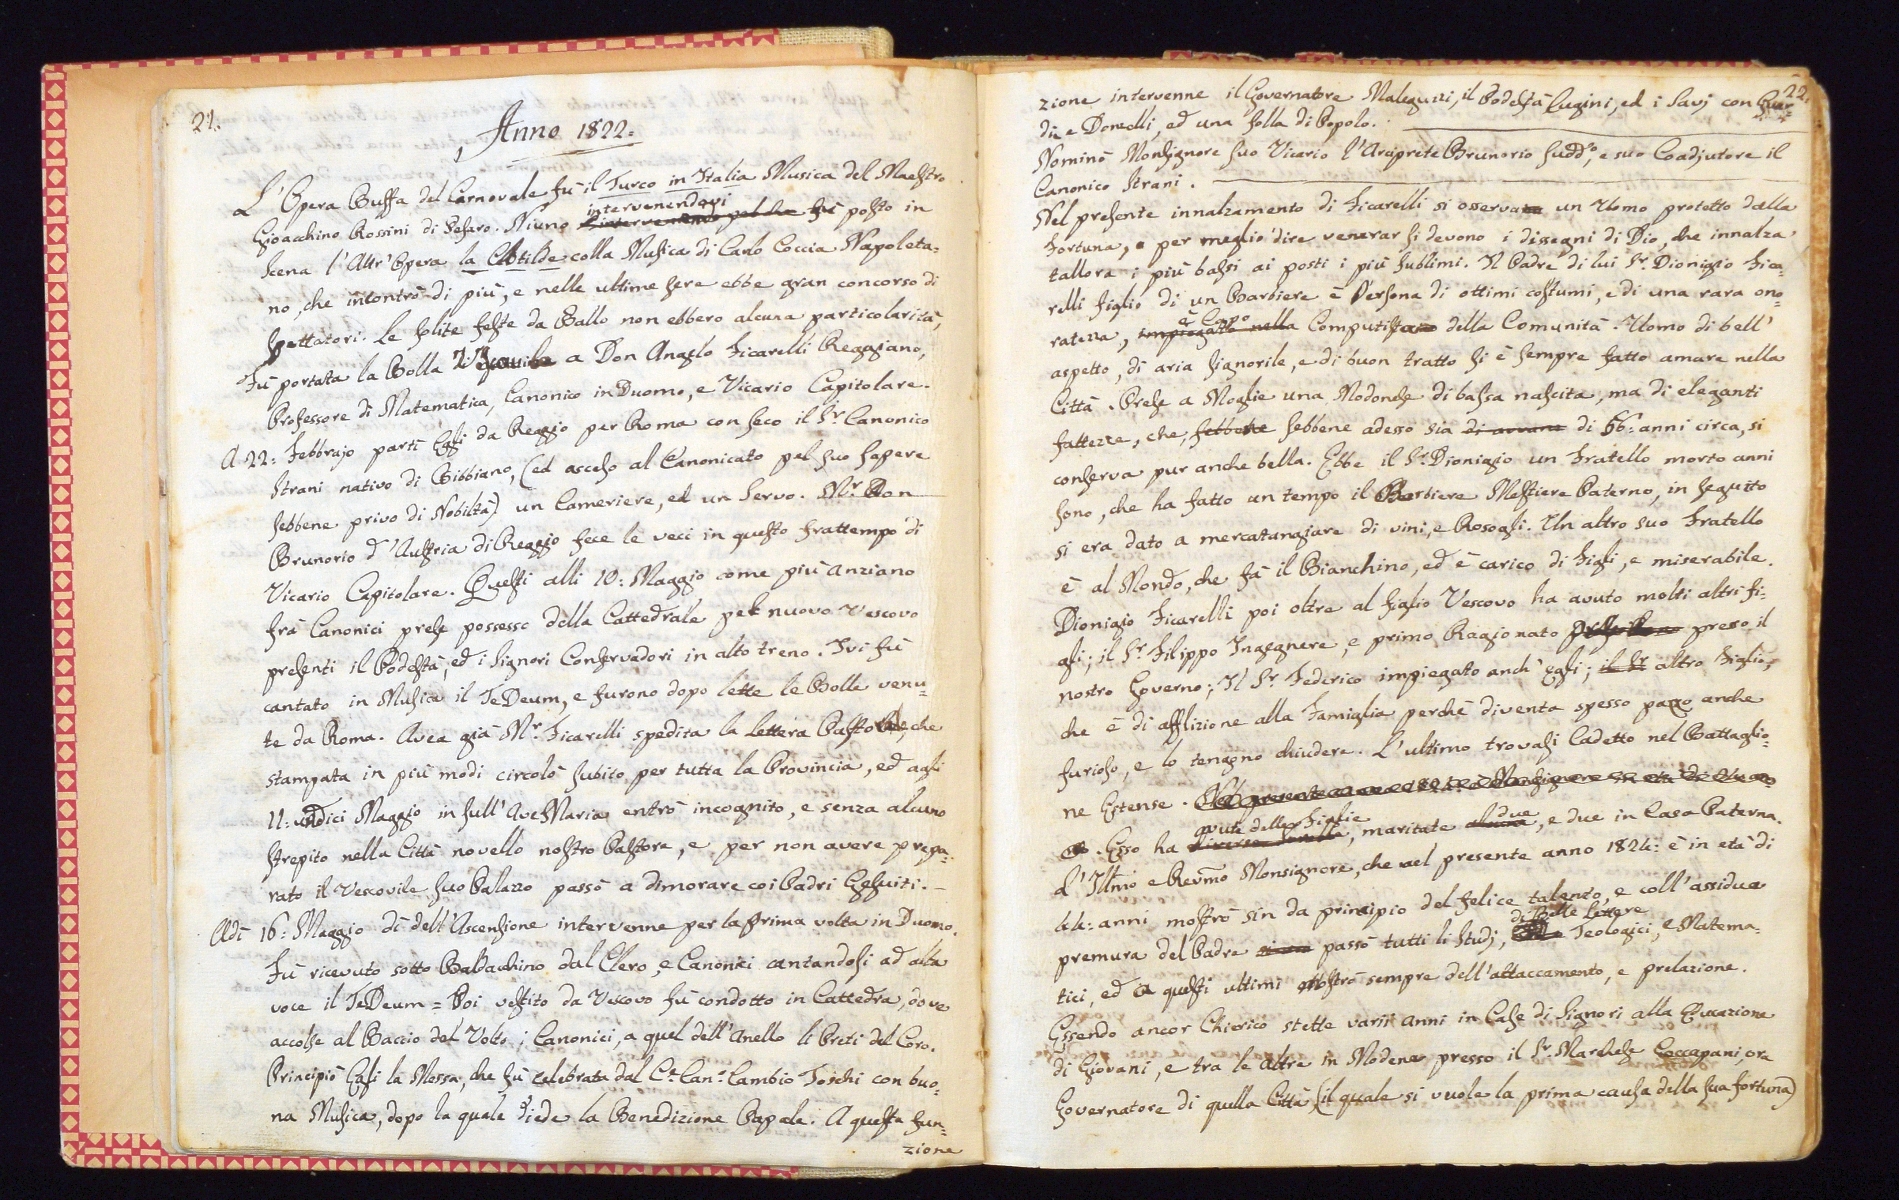 21.
Anno 1822.
L'Opera Buffa del Carnovale fù il Turco in Italia Musica del Maestro
Gioacchino Rossini di Pesaro. Niuno intervenendovi fù posto in
Scena l'Altr'Opera la Clotilde colla Musica di Carlo Coccia Napoleta=
no, che incontrò di più, e nelle ultime sere ebbe gran concorso di
Spettatori. Le solite feste da Ballo non ebbero alcuna particolarità,
Fù portata la Bolla di a Don Angelo Ficarelli Reggiano,
Professore di Matematica, Canonico in Duomo, e Vicario Capitolare.
A 22: Febbrajo partì Egli da Reggio per Roma con seco il Sr. Canonico
Strani nativo di Bibbiano, (ed asceso al Canonicato pel suo sapere
sebbene privo di Nobiltà) un Cameriere, ed un Servo. Mr. Don
Brunorio d'Austria di Reggio fece le veci in questo frattempo di
Vicario Capitolare. Questi alli 10: Maggio come più anziano
frà Canonici prese possesso della Cattedrale pel nuovo Vescovo
presenti il Podestà, ed i Signori Conservadori in alto treno. Ivi fù
cantato in Musica il TeDeum, e furono dopo lette le Bolle venu=
te da Roma. Avea già Mr. Ficarelli spedita la Lettera Pastorale, che
stampata in più modi circolò subito per tutta la Provincia, ed agli
11: undici Maggio in sull'AveMaria entrò incognito, e senza alcuno
strepito nella Città novello nostro Pastore, e per non avere prepa=
rato il Vescovile suo Palazzo passò a dimorare coi Padri Gesuiti. -
Adì 16: Maggio dì dell'Ascensione intervenne per la prima volta in Duomo.
Fù ricevuto sotto Baldachino dal Clero, e Canonici cantandosi ad alta
voce il TeDeum = Poi vestito da Vescovo fù condotto in Cattedra, dove
accolse al Baccio del Volto i Canonici, a quel dell'Anello li Preti del Coro.
Principiò Egli la Messa, che fù celebrata dal Can. Cambio Toschi con buo=
na Musica, dopo la quale diede la Benedizione Papale. A questa fun=
zione
22.
zione intervenne il Governatore Maleguzzi, il Podestà Lugini, ed i Savj con Guar=
die e Donzelli, ed una folla di Popolo.
Nominò Monsignore suo Vicario l'Arciprete Brunorio sudd.o, e suo Coadjutore il
Canonico Strani.
Nel presente innalzamento di Ficarelli si osserva un Uomo protetto dalla
Fortuna, o per meglio dire venerar si devono i dissegni di Dio, che innalza
tallora i più bassi ai posti i più sublimi. Il Padre di lui Sr. Dionigio Fica=
relli figlio di un Barbiere è Persona di ottimi costumi, e di una rara ono=
ratezza, è Capo impiegato nella Computista della Comunità. Uomo di bell'
aspetto, di aria signorile, e di buon tratto si è sempre fatto amare nella
Città. Prese a Moglie una Modonese di bassa nascita, ma di eleganti
fattezze, che, sebbene sebbene adesso sia di 66: anni circa, si
conserva pur anche bella. Ebbe il Sr. Dionigio un Fratello morto anni
sono, che ha fatto un tempo il Barbiere Mestiere Paterno, in seguito
si era dato a mercatangiare di vini, e Rosogli. Un altro suo Fratello
è al Mondo, che fà il Bianchino, ed è carico di Figli, e miserabile.
Dionigio Ficarelli poi oltre al Figlio Vescovo ha avuto molti altri fi=
gli; il Sr. Filippo Ingegnere e primo Ragionato presso il
nostro Governo; Il Sr. Federico impiegato anch'egli; il Sr altro Figlio,
che è di afflizione alla Famiglia perchè diventa spesso pazzo anche
furioso, e lo tengono chiudere. L'ultimo trovasi Cadetto nel Battaglio=
ne Estense.
Esso ha avute delle Figlie, maritate due, e due in Casa Paterna.
L'Illmo e Revmo Monsignore, che nel presente anno 1824: è in età di
44: anni mostrò sin da principio del felice talento, e coll'assidua
premura del Padre passò tutti li Studj, di Belle Lettere Teologici, e Matema=
tici, ed a questi ultimi mostrò sempre dell'attaccamento, e prelazione.
Essendo ancor Chierico stette varii anni in Case di Signori alla Educazione
di Giovani, e tra le altre in Modena presso il Sr. Marchese Coccapani, ora
Governatore di quella Città (il quale si vuole la prima causa della sua fortuna)